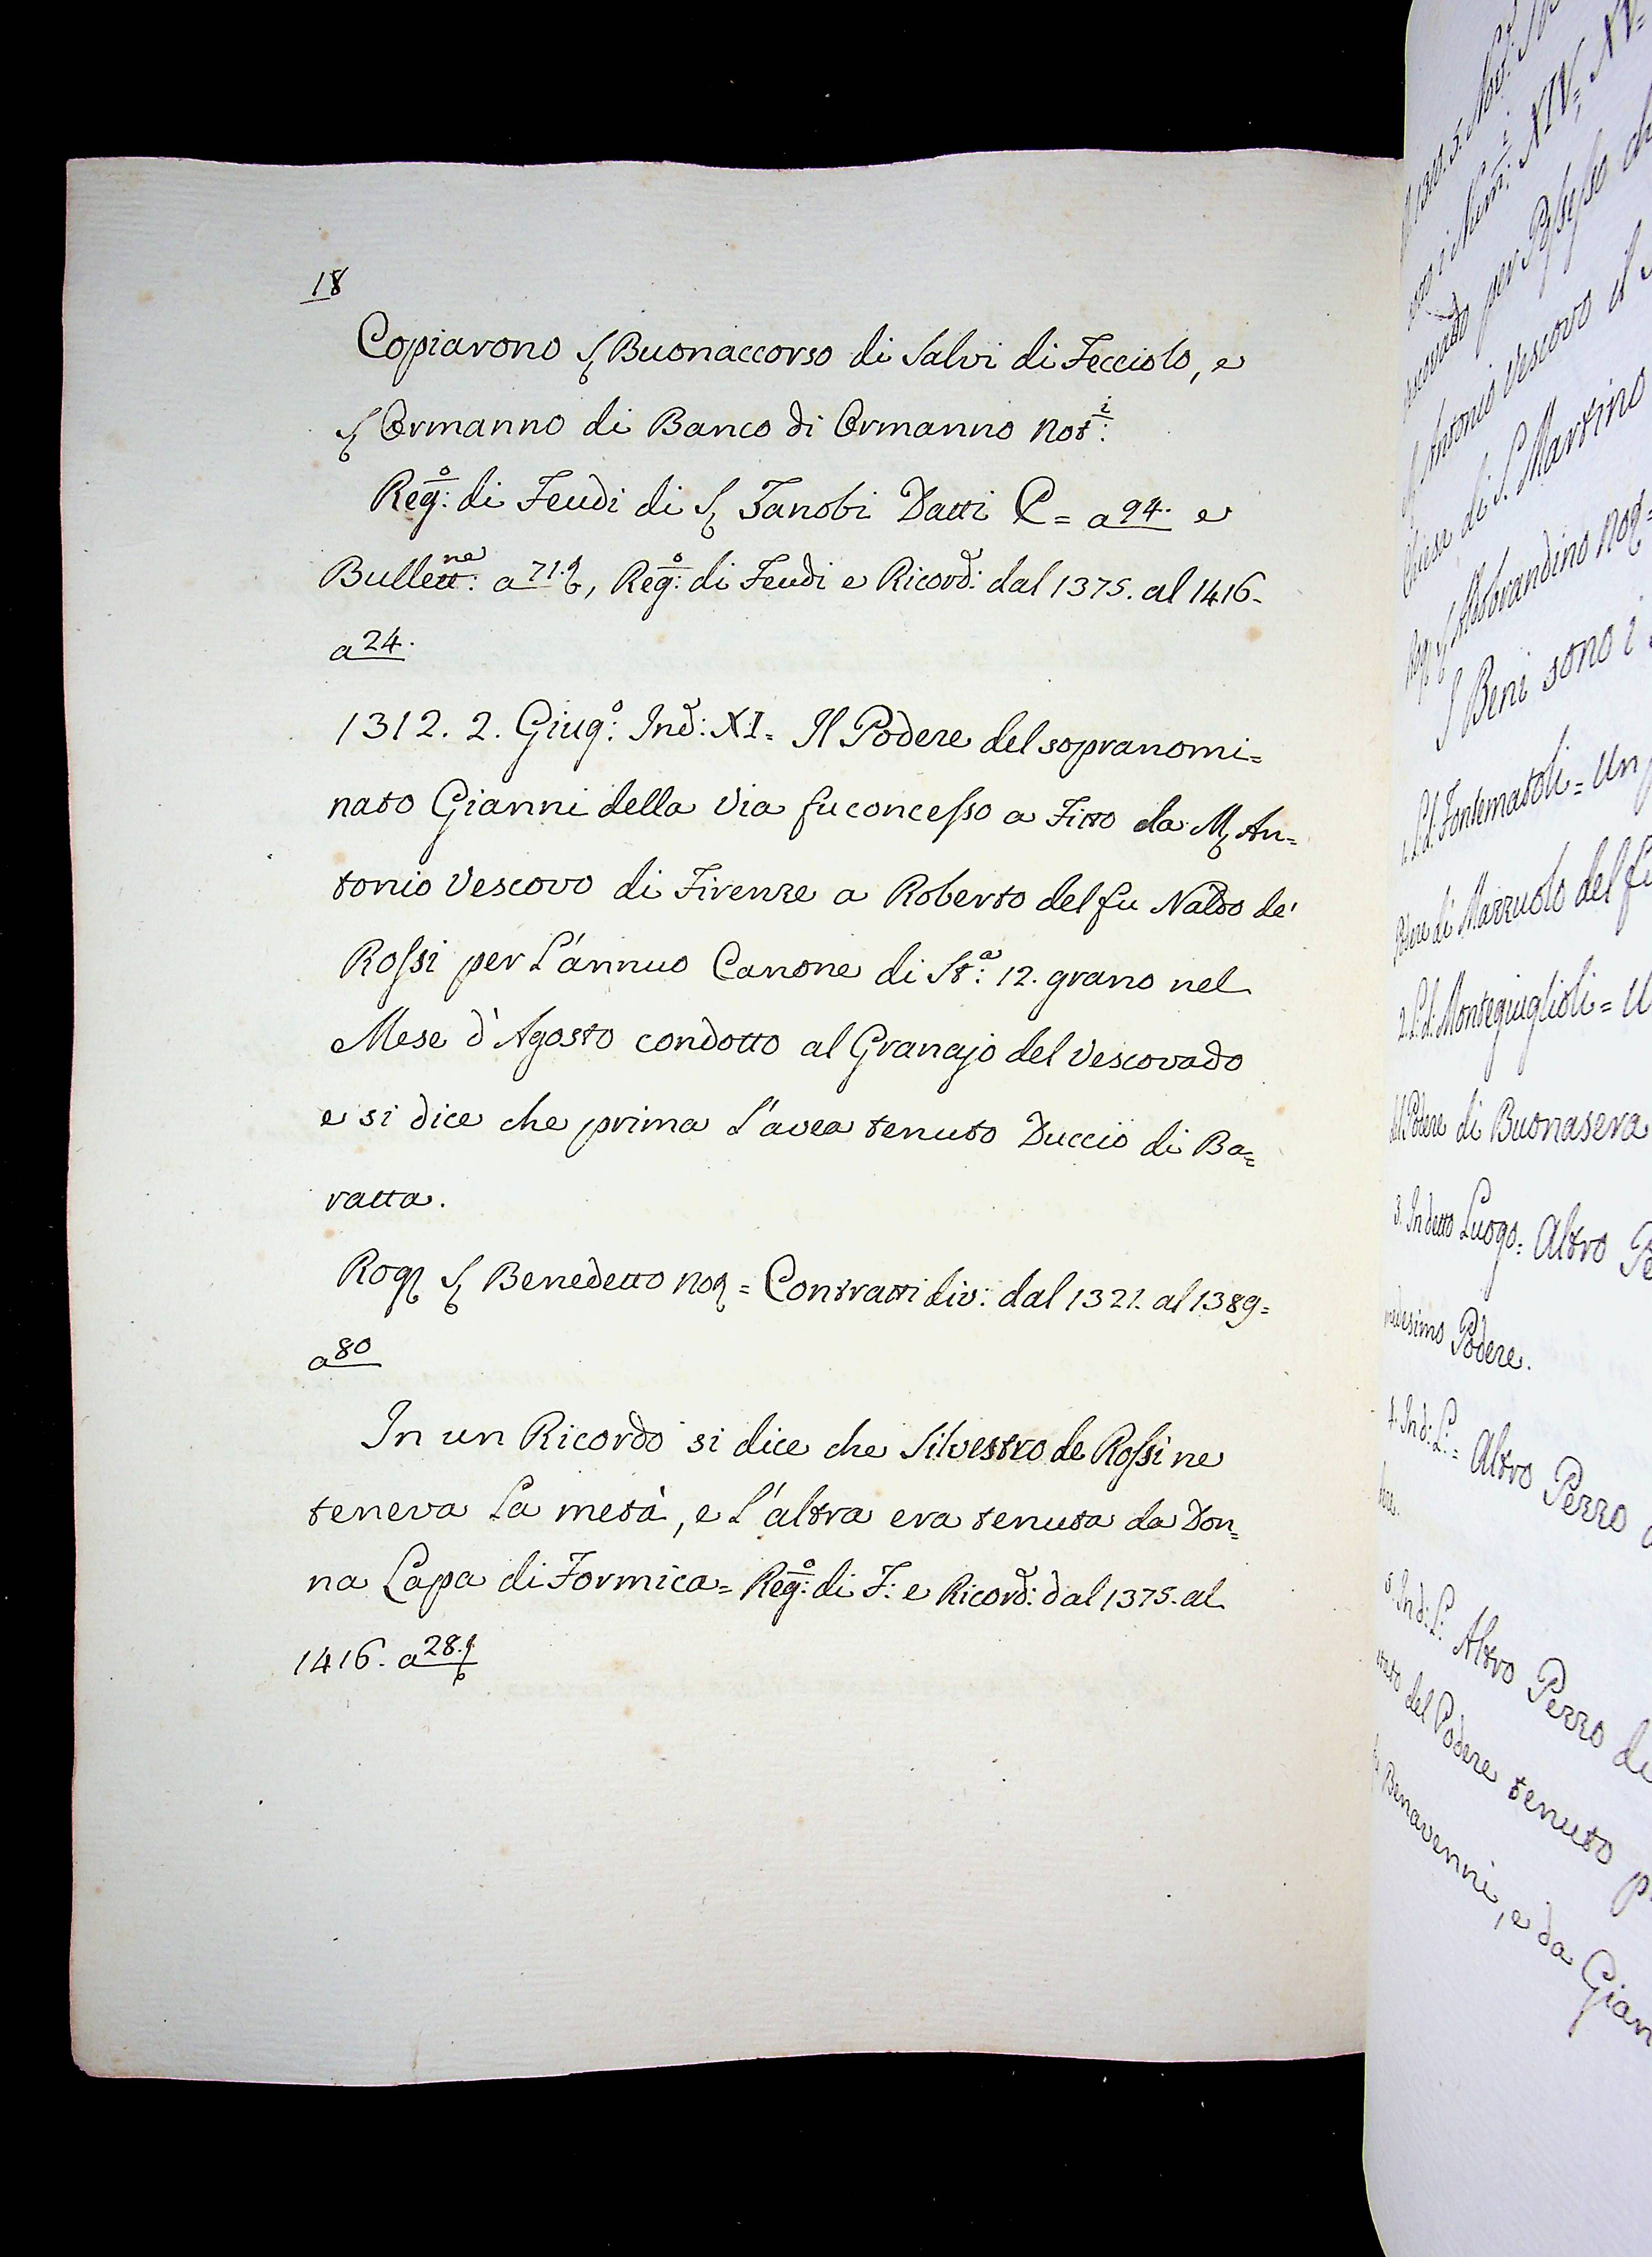 18
Copiarono S. Buonaccorso di Salvi di Fecciolo, e
S. Ormanno di Banco di Ormanno Not.i
Reg.o: di Feudi di S. Zanobi Datti C = a 94. e
Bullett.ne: a 71.t, Reg.o: di Feudi e Ricord: dal 1375. al 1416-
a 24.
1312. 2. Giug.o: Ind: XI= Il Podere del sopranomi=
nato Gianni della Via fu concesso a Fitto da M. An=
tonio Vescovo di Firenze a Roberto del fu Naldo de'
Rossi per l'annuo Canone di St.a: 12. grano nel
Mese d'Agosto condotto al Granajo del Vescovado
e si dice che prima l'avea tenuto Duccio di Ba=
ratta.
Rog. S. Benedetto no. = Contratti div: dal 1321. al 1389=
a 80
In un Ricordo si dice che Silvestro de Rossi ne
teneva la metà, e l'altra era tenuta da Don=
na Lapa di Formica= Reg.o: di F: e Ricord: dal 1375. al
1416. a 28.t
per Possesso
Antonio Vescovo il
Chiesa di S. Martino
Aldobrandino
I Beni sono i
1. L.d. Fontematoli = Un
Podere di Mazzuolo del fu
2. L.d. Montegiuglioli = U
del Podere di Buonasera
3. In detto Luogo= Altro Pe
medesimo Podere.
4. In d: L.= Altro Pezzo
5. In d: L: Altro Pezzo di
del Podere tenuto
Benavenni, e da Gian